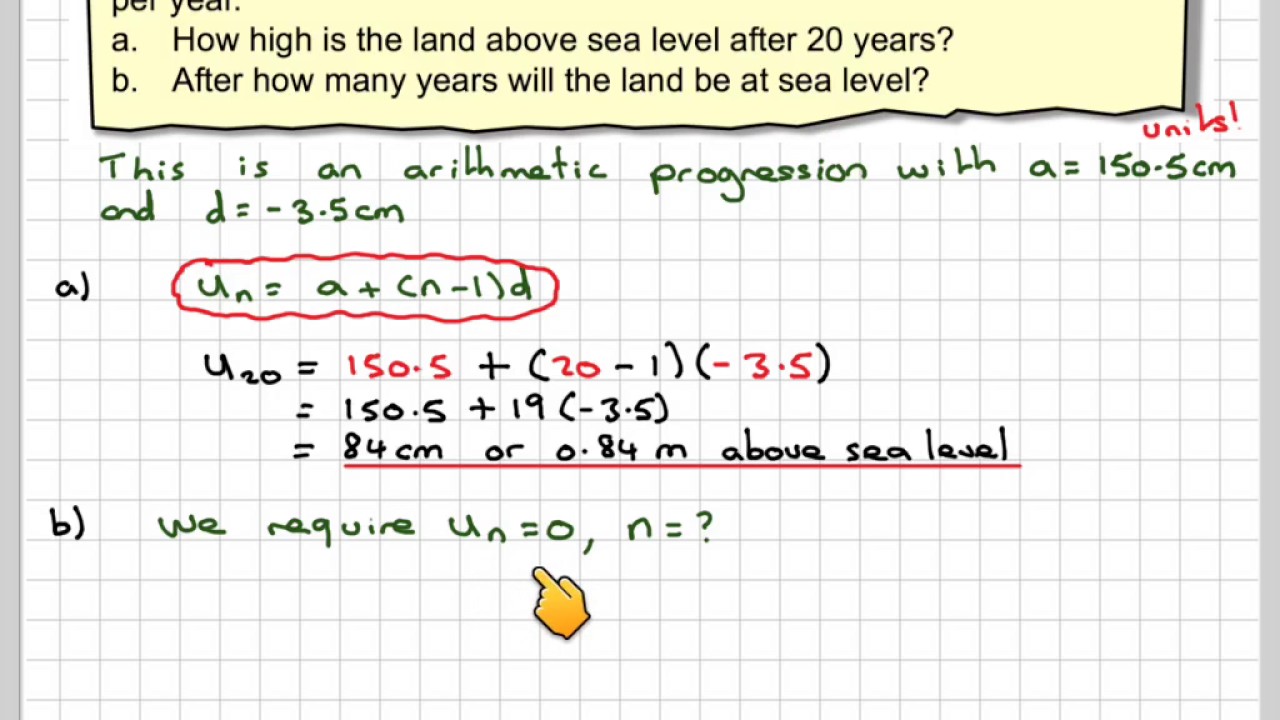 per year.
a. How high is the land above sea level after 20 years?
b. After how many years will the land be at sea level?
units!
This is an arithmetic progression with a = 150.5cm
and d = -3.5cm
a) uₙ = a + (n-1)d
u₂₀ = 150.5 + (20 - 1)(-3.5)
= 150.5 + 19(-3.5)
= 84cm or 0.84 m above sea level
b) We require uₙ = 0, n = ?